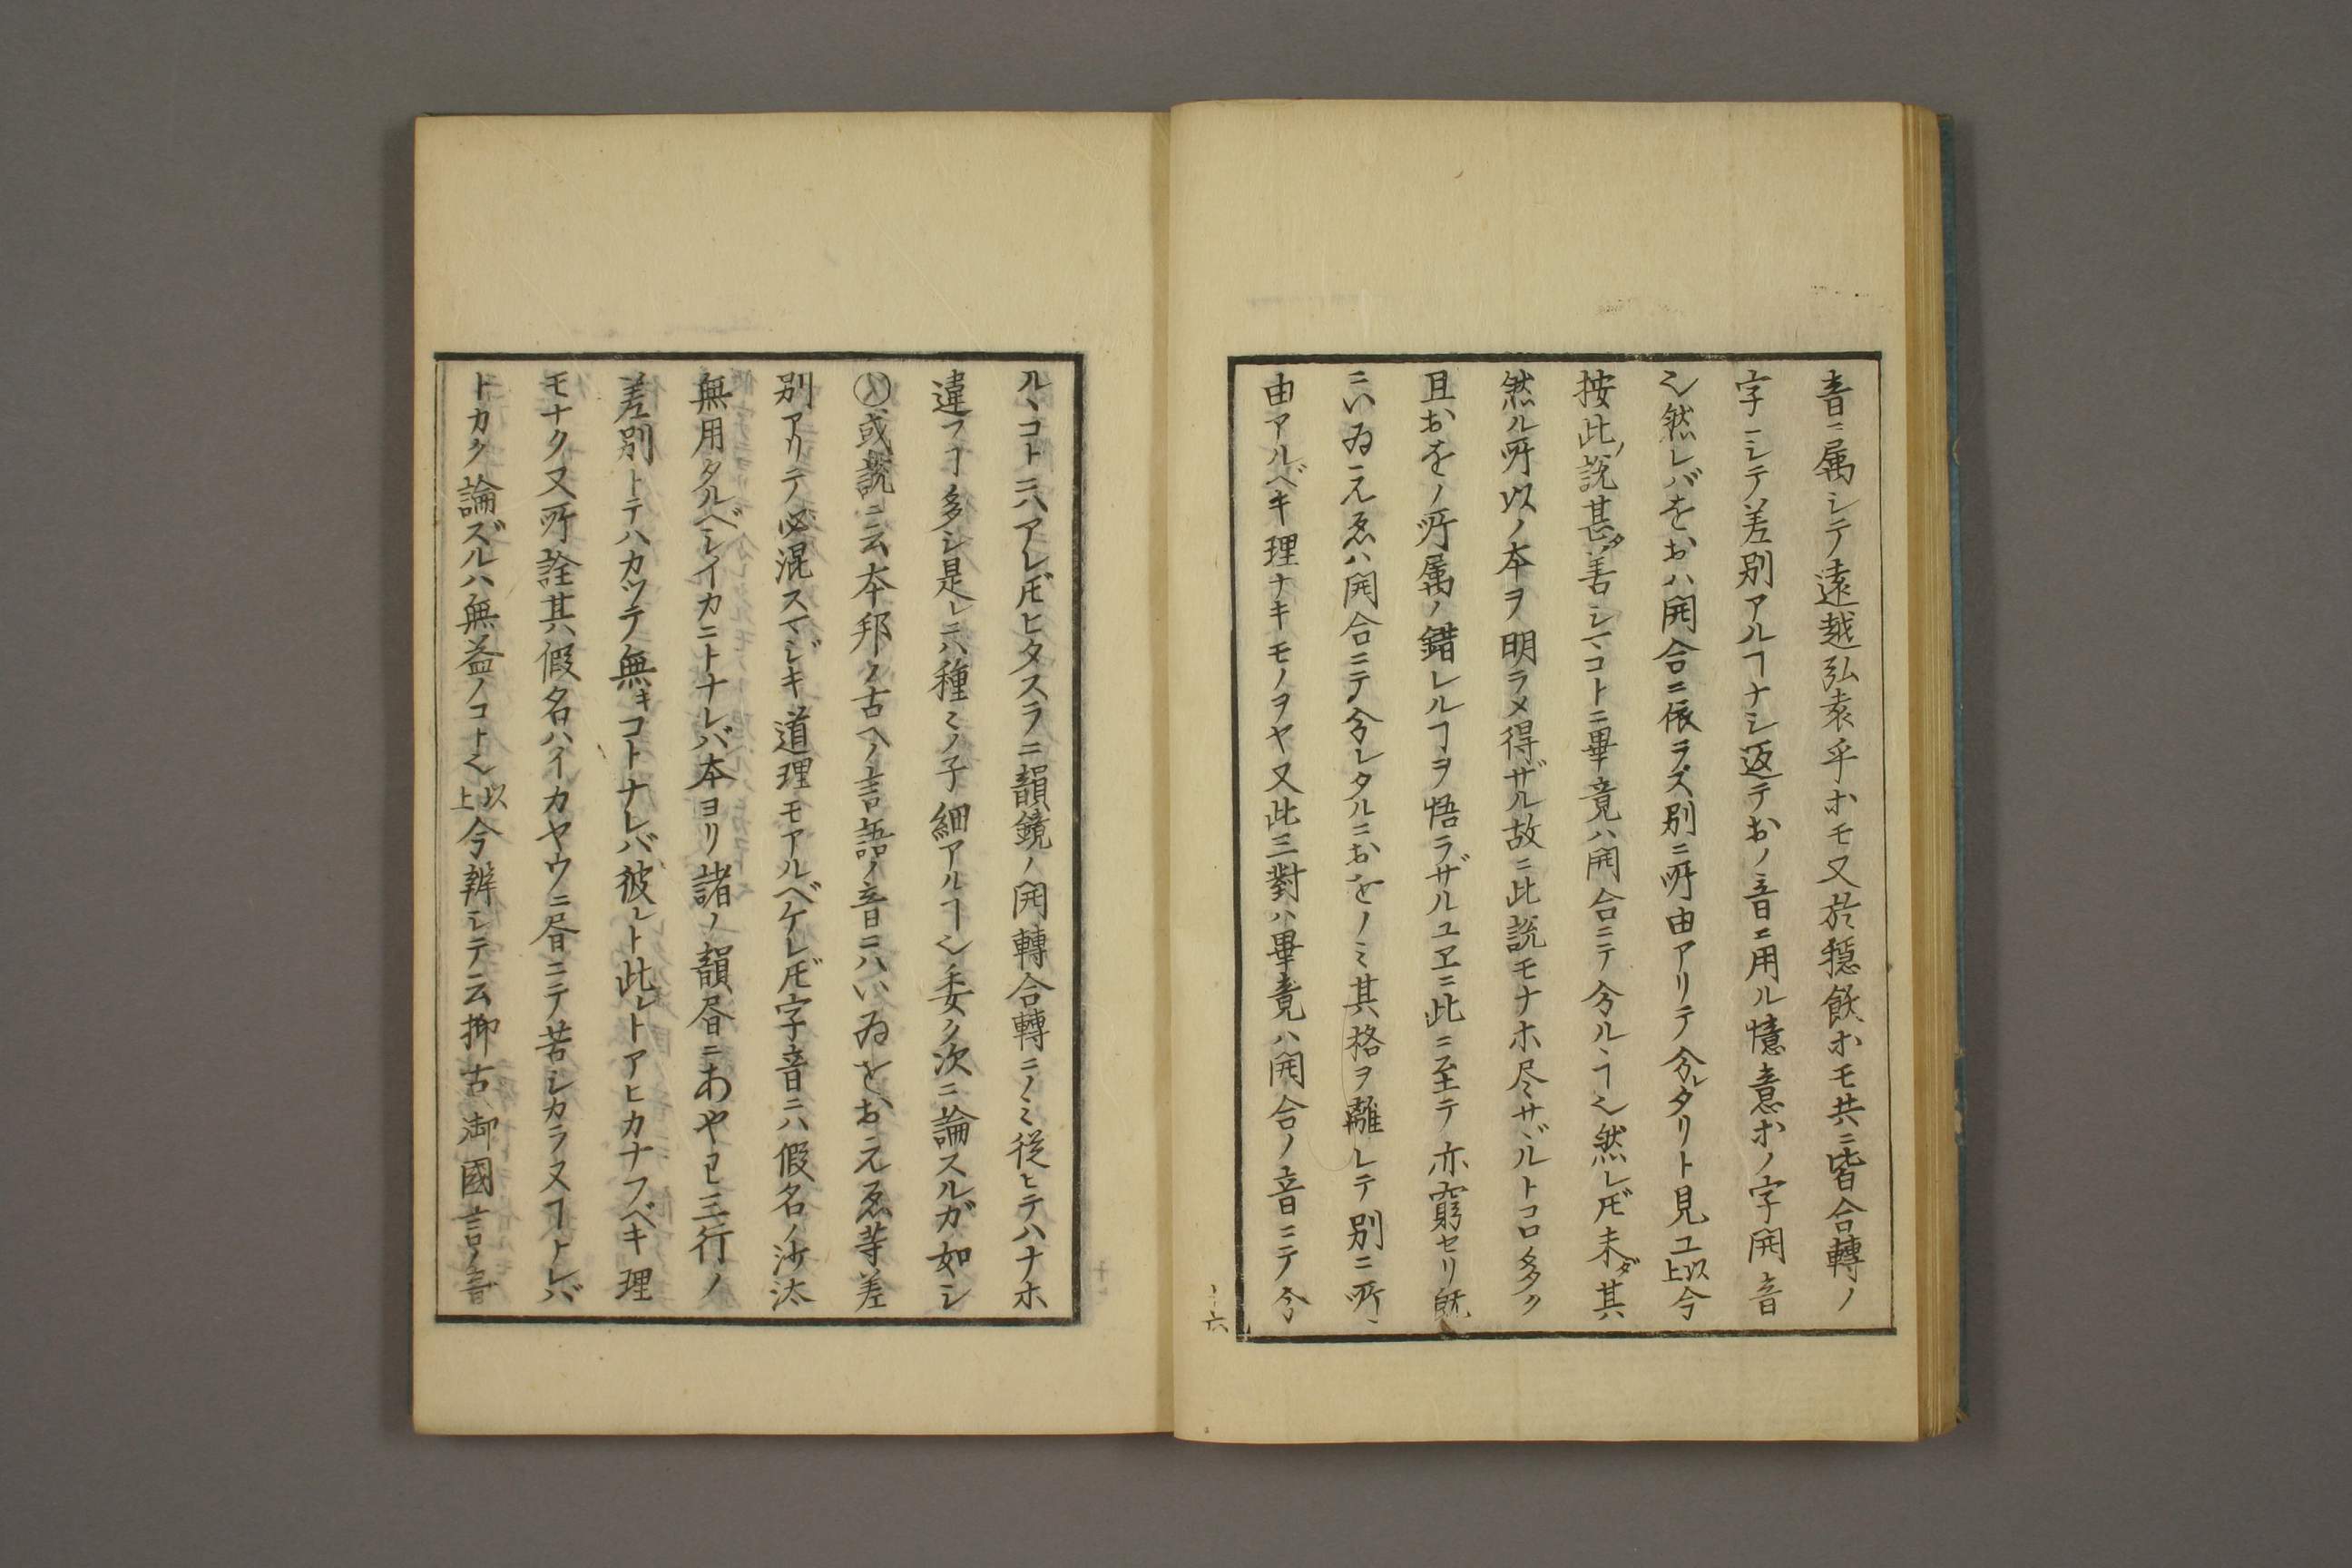 音ニ属シテ遠越弘袁乎ホモ又於穏飫ホモ共ニ皆合轉ノ
字ニシテ差別アルヿナシ返テおノ音ニ用ル憶意ホノ字開音
也然レバをおハ開合ニ依ラズ別ニ所由アリテ分レタリト見ユ以上今
按此ノ説甚ダ善シマコトニ畢竟ハ開合ニテ分ルヽヿ也然レ𪜈未ダ其
然ル所以ノ本ヲ明ラメ得ザル故ニ此説モナホ尽サヾルトコロ多ク
且おをノ所属ノ錯レルヿヲ悟ラザルユヱニ此ニ至テ亦窮セリ既
ニいゐえゑハ開合ニテ分レタルニおをノミ其格ヲ離レテ別ニ所
由アルベキ理ナキモノヲヤ又此三對ハ畢竟ハ開合ノ音ニテ分
十六
ルヽコトニハアレ𪜈ヒタスラニ韻鏡ノ開轉合轉ニノミ從ヒテハナホ
違フヿ多シ是レニハ種〻ノ子細アルヿ也委ク次ニ論スルガ如シ
或説ニ云本邦ノ古ヘノ言語ノ音ニハいゐをおえゑ等差
別アリテ必混スマジキ道理モアルベケレ𪜈字音ニハ假名ノ沙汰
無用タルベシイカニトナレバ本ヨリ諸ノ韻昏ニあやわ三行ノ
差別トテハカツテ無キコトナレバ彼レト此レトアヒカナフベキ理
モナク又所詮其假名ハイカヤウニ昏ニテ苦シカラヌヿトレバ
トカク論ズルハ無益ノコト也以上今辨シテ云抑古御國言ノ音